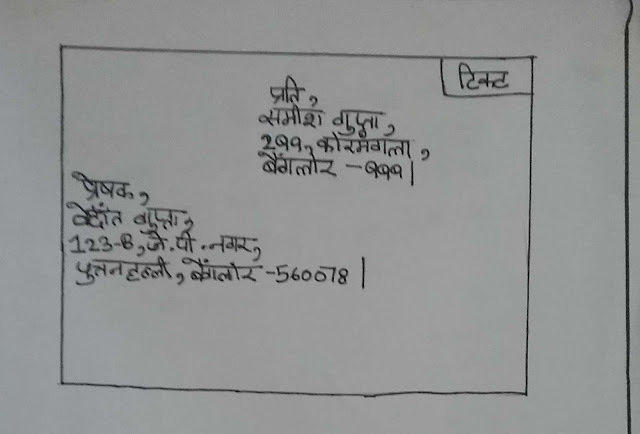 टिकट
प्रति,
समीश गुप्ता,
२११, कोरमंगला,
बैंगलोर -१११|
प्रेषक,
वेदांत गुप्ता,
123-B, जे.पी.नगर,
पुत्तनहल्ली, बैंगलोर -560078|